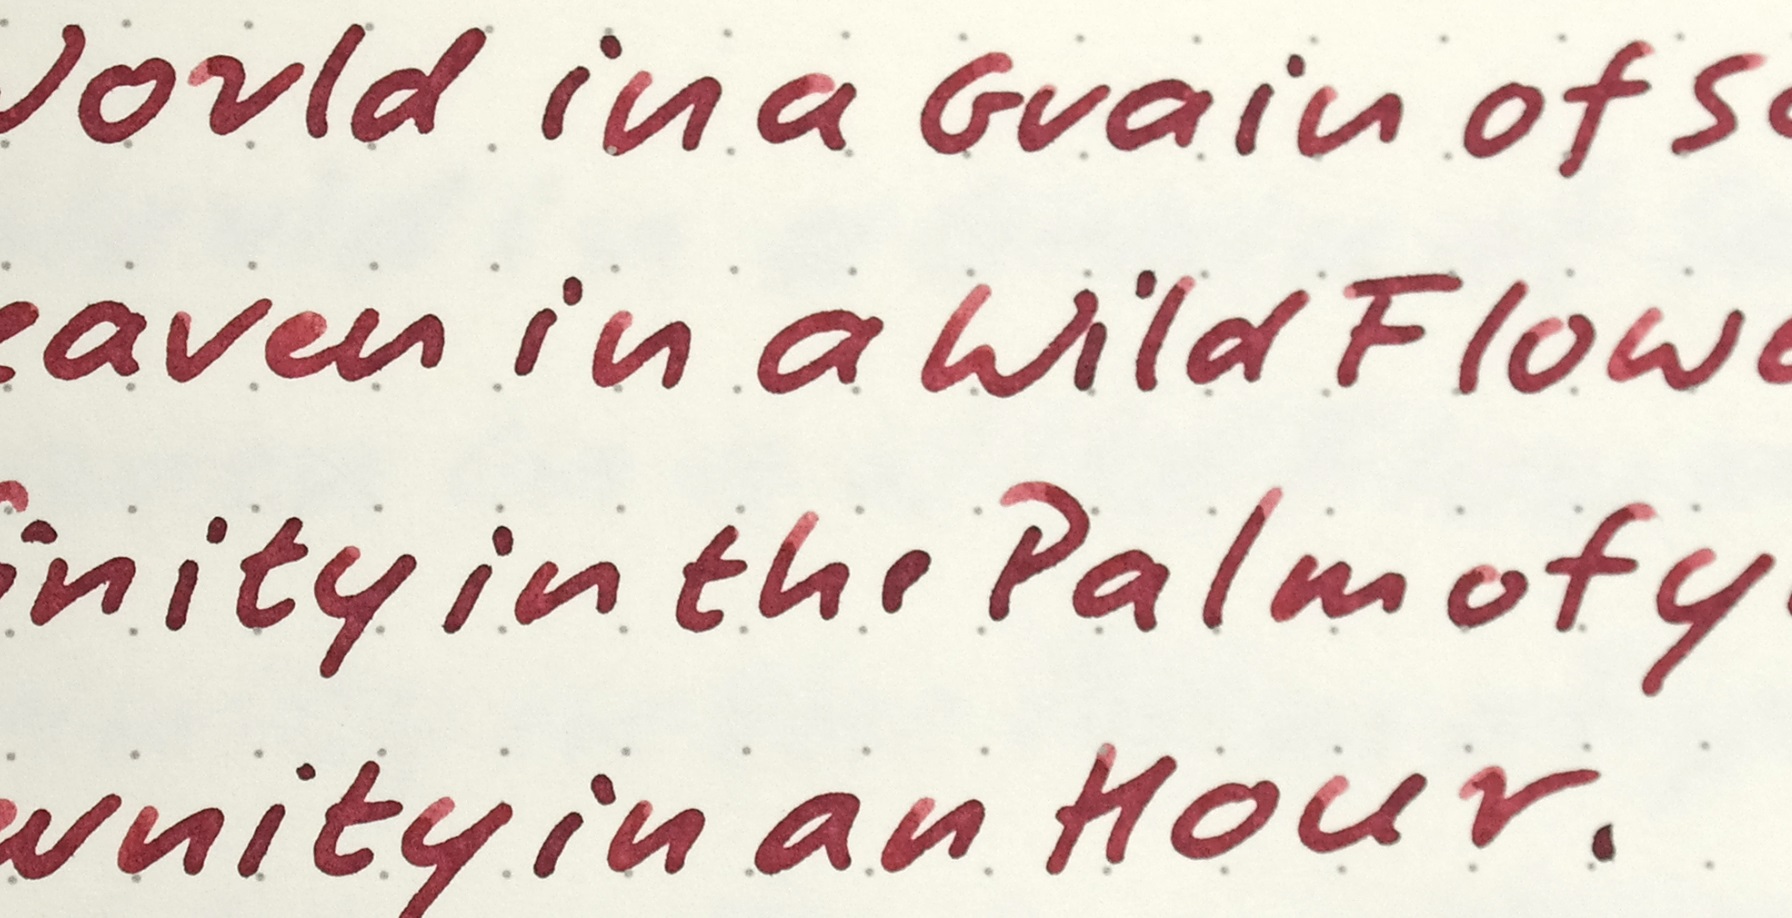 World in a Grain of Sa
eaven in a Wild Flowe
finity in the Palm of y
rnity in an Hour.